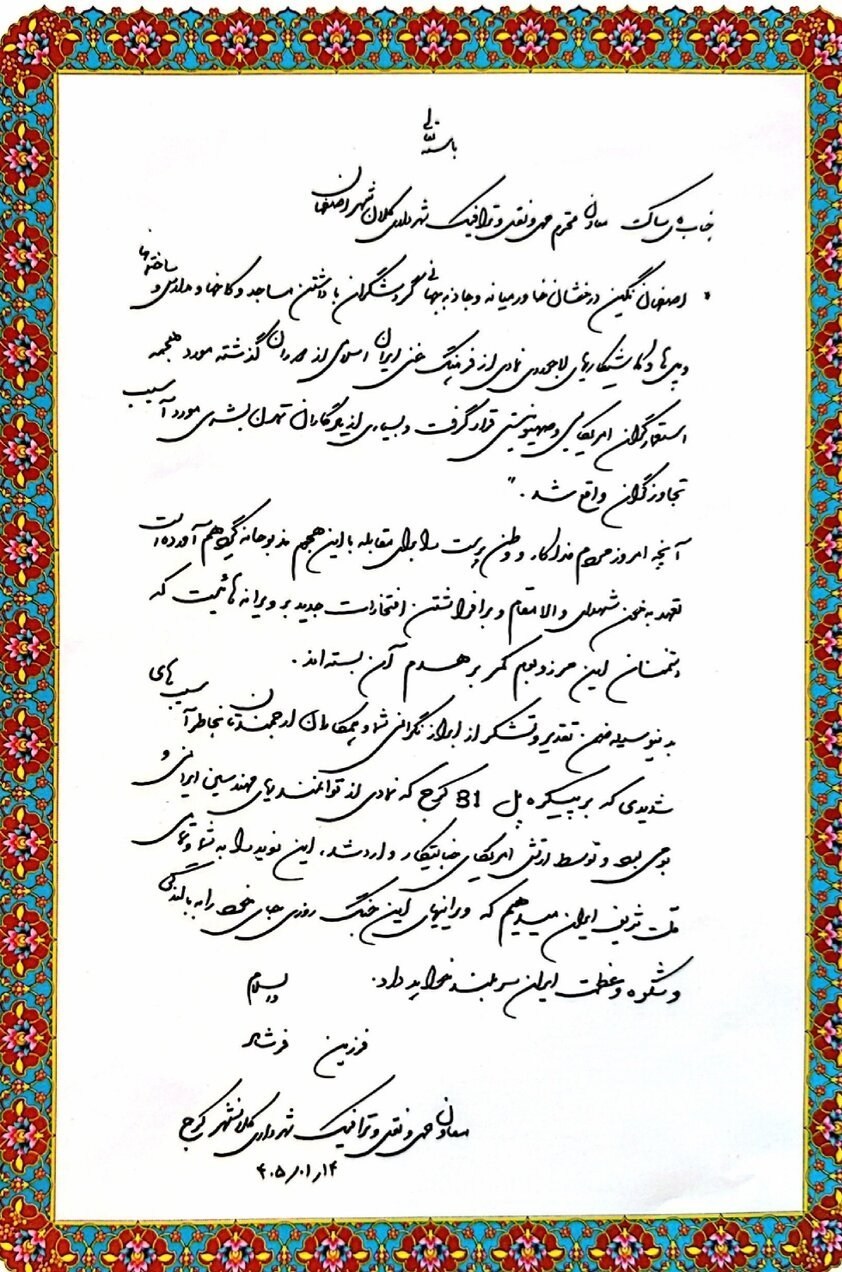 باسمه تعالی
جناب معاون محترم حمل و نقل و ترافیک شهرداری کلان شهر اصفهان
" اصفهان نگین درخشان خاورمیانه و جاذبه جهانی گردشگران با داشتن مساجد و کاخها و مدارس و ساختمانها
و پلی ها و کاشیکاریهای لاجوردی نمادی از فرهنگ غنی ایران اسلامی از دوران گذشته مورد هجمه
استعمارگران امریکایی و صهیونیستی قرار گرفت و بسیاری از یادگاران تمدن بشری مورد آسیب
تجاوزگران واقع شد . "
آنچه امروز مردم فداکار و وطن پرست ما را برای مقابله با این هجوم مذبوحانه گرد هم آورده است
تعهد به خون شهدای والامقام و برافراشتن افتخارات جدید بر ویرانه هائیست که
دشمنان این مرز و بوم کمر بر هدم آن بسته اند .
بدینوسیله ضمن تقدیر و تشکر از ابراز نگرانی شما و همکاران ارجمندتان بخاطر آسیب های
شدیدی که بر پیکره پل B1 کرج که نمادی از توانمندیهای مهندسین ایرانی و
بومی بود و توسط ارتش امریکای جنایتکار وارد شد، این نوید را به شما و تمامی
ملت شریف ایران میدهیم که ویرانیهای این جنگ روزی جای خود را به بالندگی
و شکوه و عظمت ایران سربلند خواهد داد.
والسلام
فرزین فرشاد
معاون حمل و نقل و ترافیک شهرداری کلانشهر کرج
۴۰۵/۰۱/۱۴